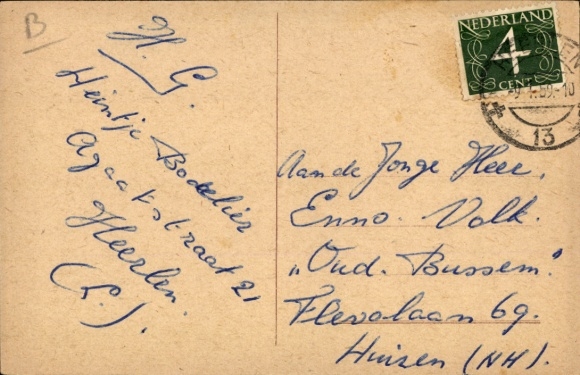 B
H. G.
Heintje Bodelier
Agaatstraat 21
Heerlen.
(L.).
NEDERLAND
4
CENT
13
Aan de Jonge Heer,
Enno. Volk.
"Oud. Bussem."
Flevolaan 69.
Huizen (NH).